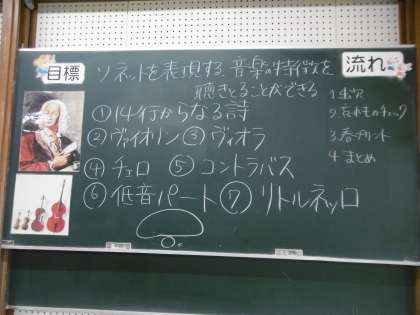 目標
ソネットを表現する、音楽の特徴を
聴きとることができる
流れ
①14行からなる詩
②ヴァイオリン③ヴィオラ
④チェロ ⑤コントラバス
⑥低音パート⑦リトルネッロ
2 忘れものチェック
3.春プリント
4 まとめ